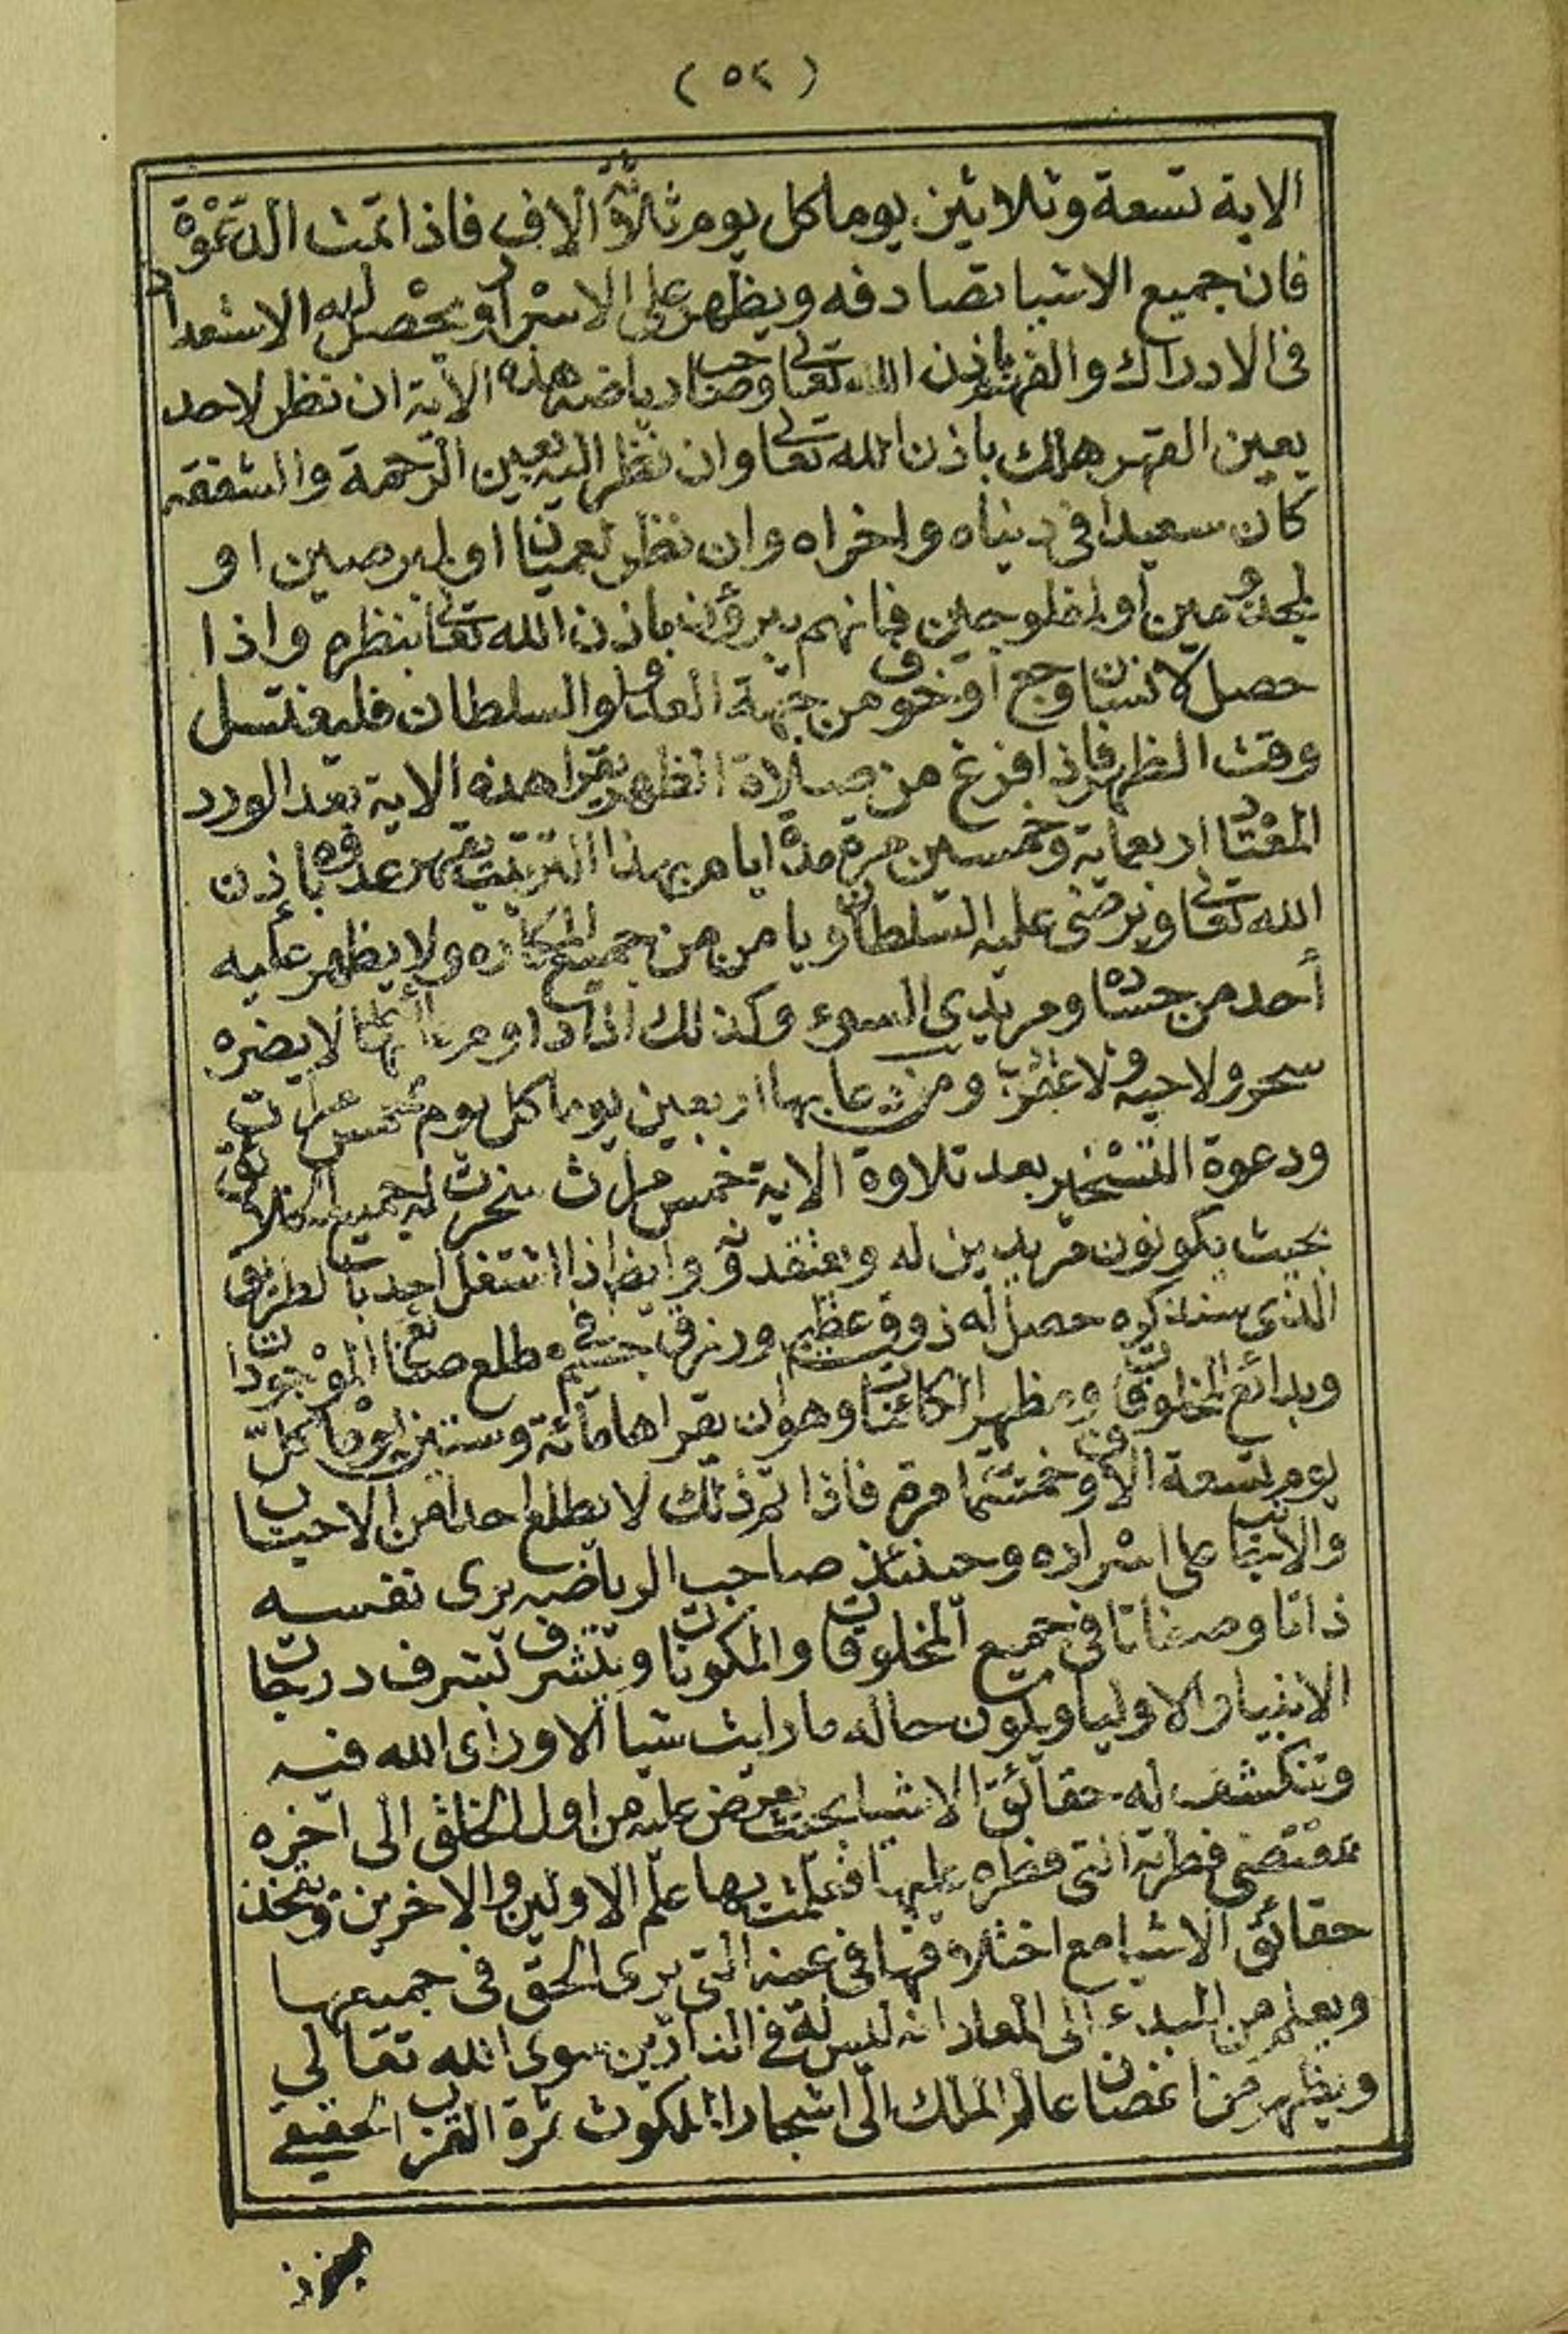 (٥٤)
الاية تسعة وثلاثين يوما كل يوم ثلاثة آلاف فاذا تمت الدعوة
فان جميع الاشيا تصادفه ويظهر على الاسرار ويحصل له الاستعداد
فى الادراك والفهم باذن الله تعالى وصاحب رياضة هذه الآية ان نظر لاحد
بعين القهر هلك باذن الله تعالى وان نظر اليه بعين الرحمة والشفقة
كان سعيدا فى دنياه واخراه وان نظر لعميان او لبرصين او
لمجذومين او لمفلوجين فانهم يبرؤن باذن الله تعالى بنظره واذا
حصل لانسان وجع أو خوف من جهة العدو والسلطان فليغتسل
وقت الظهر فاذا فرغ من صلاة الظهر يقرا هذه الاية بعد الورد
المعتاد اربعماية وخمسين مرة مدة ايام بهذا الترتيب يقهر عدوه باذن
الله تعالى ويرضى عليه السلطان ويامن من جميع المكاره ولا يظهر عليه
أحد من حساده ومريدى السوء وكذلك اذا داوم لا يضره
سحر ولا حية ولا عقرب ومن دعا بها اربعين يوما كل يوم خمس مرات
ودعوة التسخير بعد تلاوة الاية خمس مرات سخرت له جميع الخلائق
بحيث يكونون مريدين له ويعتقدونه وايضا اذا اشتغل احد بالطريق
الذى سنذكره حصل له ذوق عظيم ورزق جسيم طلع صنائع الموجودات
وبدائع المخلوقات ومظهر الكائنات وهو ان يقراها مائة وستين يوما كل
يوم تسعة الاف وخمستما مرة فاذا تم ذلك لا يطلع احدا من الاحباب
والاجانب على اسراره وحينئذ صاحب الرياضة يرى نفسه
ذاتا وصفاتا فى جميع المخلوقات والمكونات ويتشرف بشرف درجات
الانبيا والاوليا ويكون حاله ما رايت شيا الا ورأى الله فيه
وتنكشف له حقائق الاشيا بحيث يعرض عليه من اول الخلق الى آخره
بمقتضى فطرته التى فطره عليها فعلمت بها علم الاولين والاخرين وتتخذ
حقائق الاشيا مع اختلافها فى عينه التى يرى الحق فى جميعها
ويعلم من المبدء الى المعاد انه ليس له فى الدارين سوى الله تعالى
ويظهر من اغصان عالم الملك الى اشجار الملكوت ثمرة القرب الحقيقى